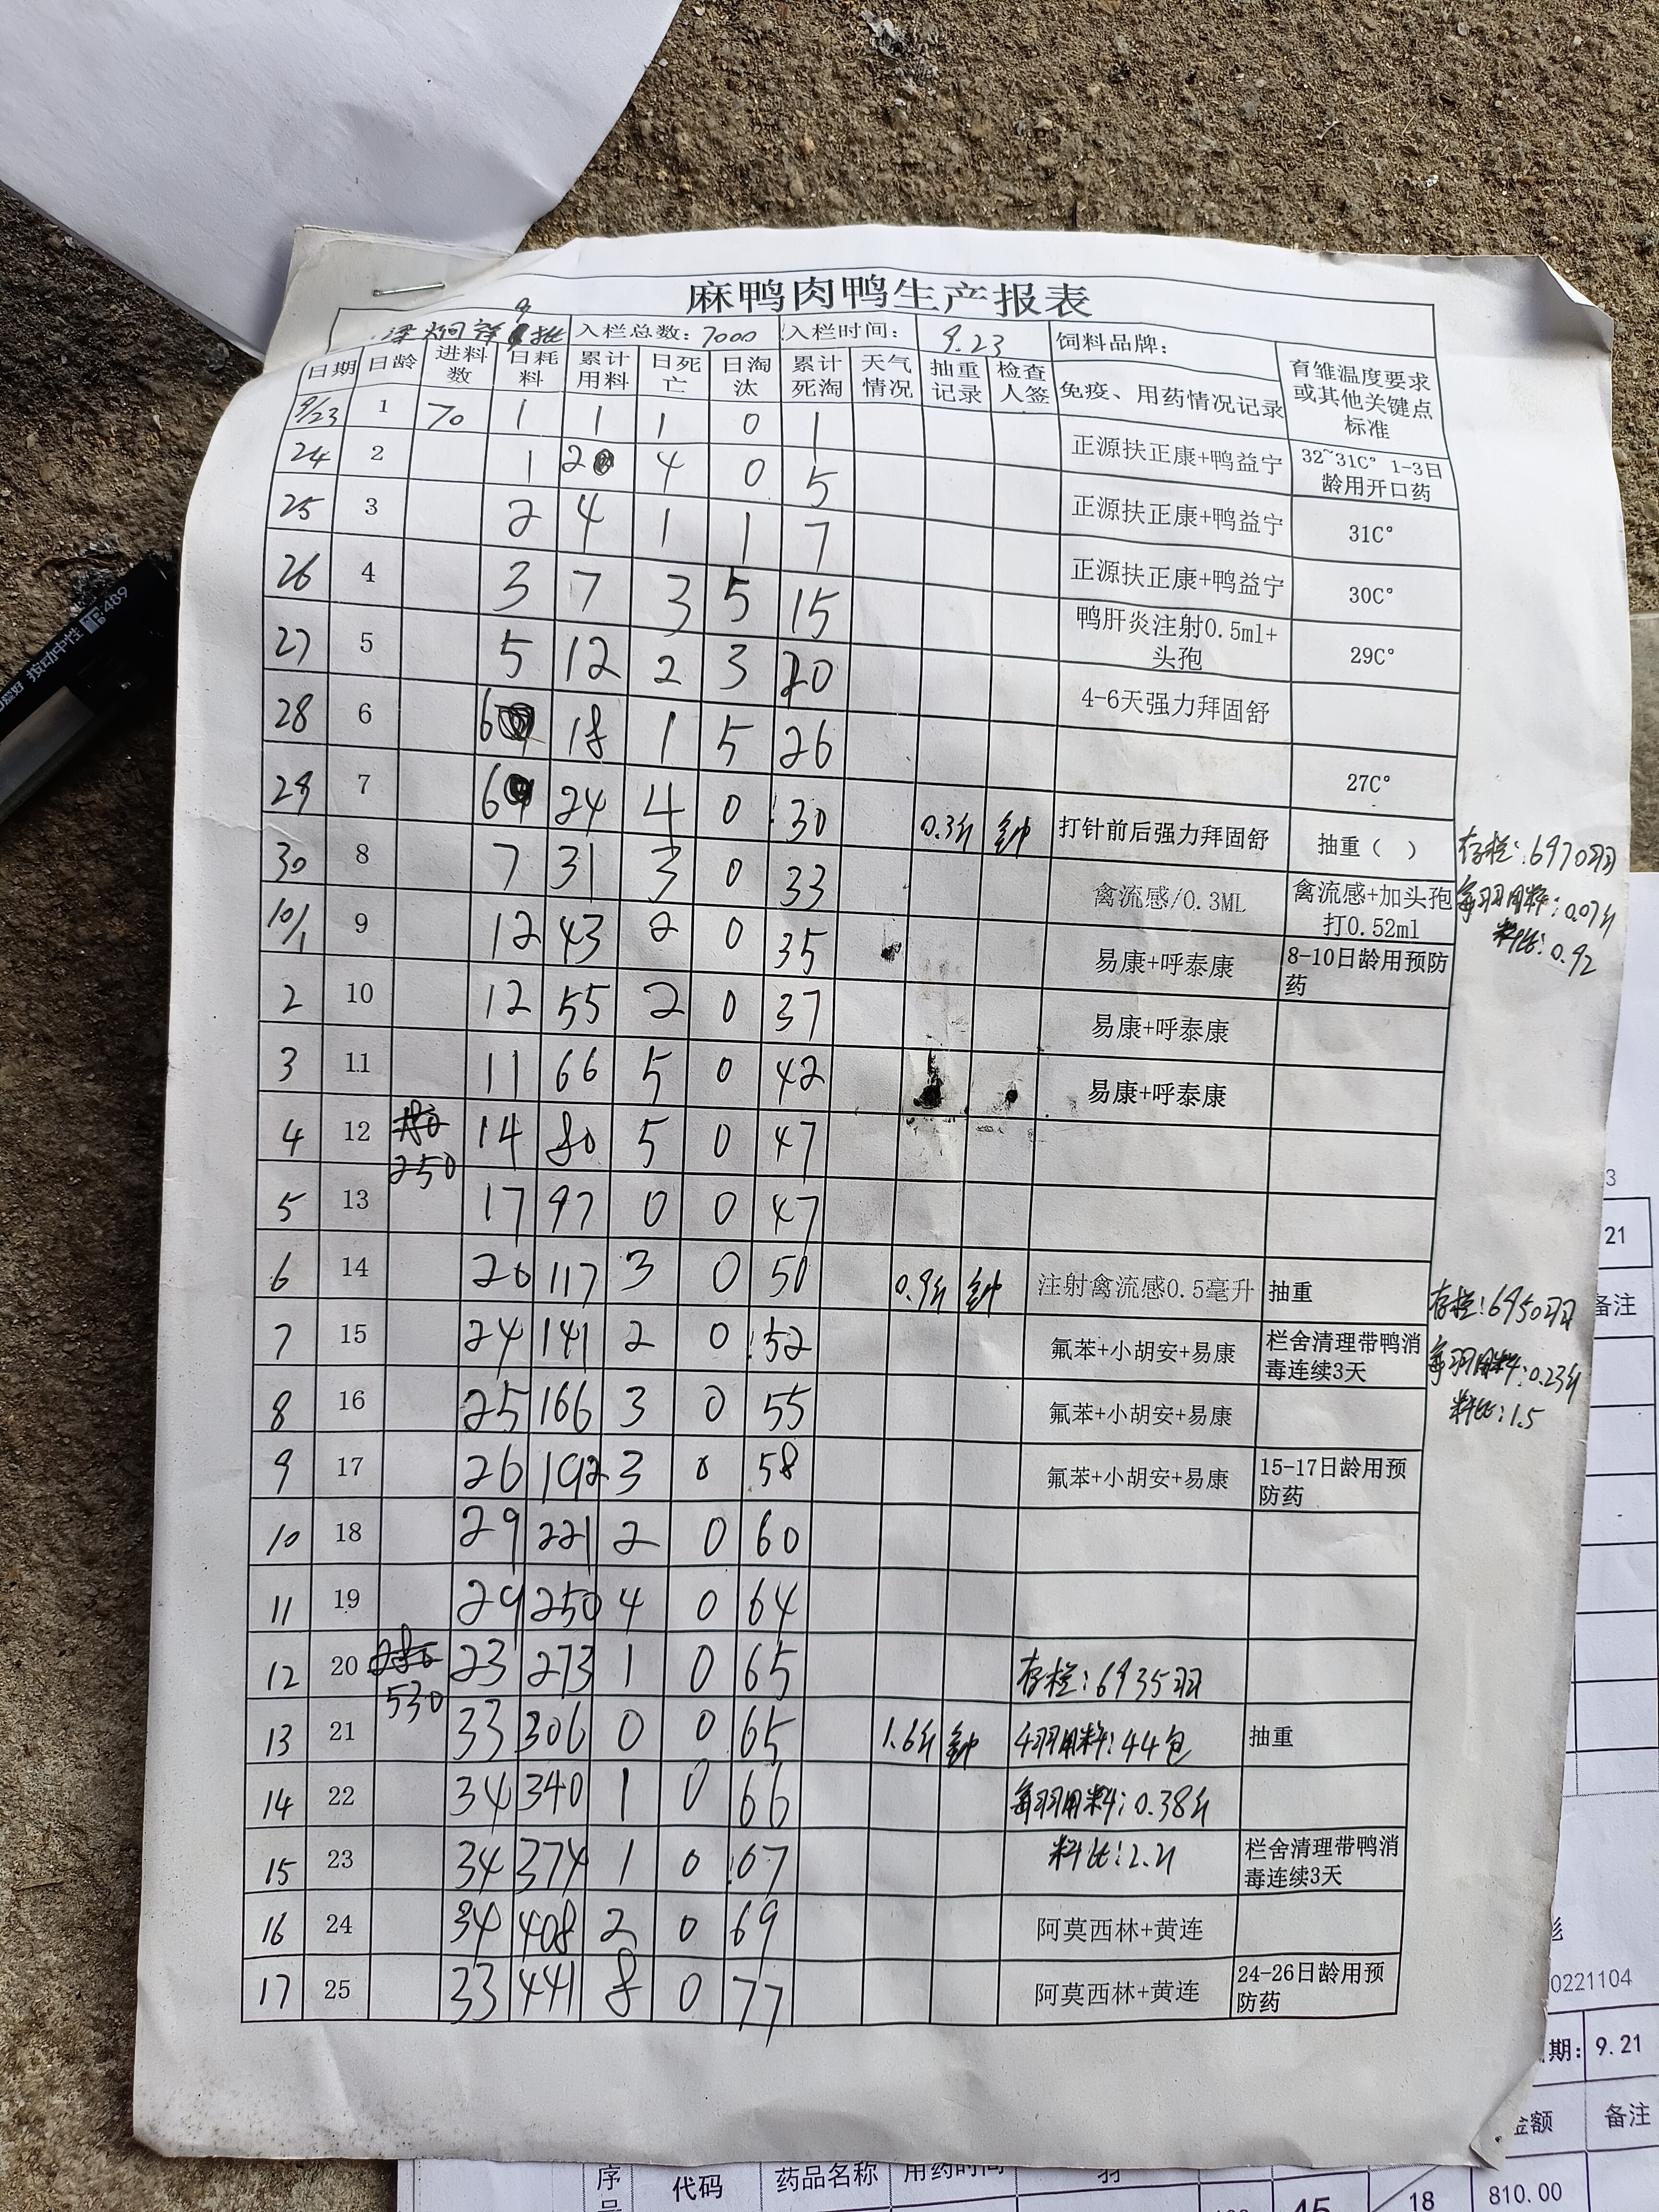 麻鸭肉鸭生产报表
9批 入栏总数：7000 入栏时间： 9.23 饲料品牌：
日期 日龄 进料数 日耗料 累计用料 日死亡 日淘汰 累计死淘 天气情况 抽重记录 检查人签 免疫、用药情况记录 育雏温度要求或其他关键点标准
9/23 1 70 1 1 1 0 1
24 2 1 2 4 0 5 正源扶正康+鸭益宁 32~31C° 1-3日龄用开口药
25 3 2 4 1 1 7 正源扶正康+鸭益宁 31C°
26 4 3 7 3 5 15 正源扶正康+鸭益宁 30C°
27 5 5 12 2 3 20 鸭肝炎注射0.5ml+头孢 29C°
28 6 6 18 1 5 26 4-6天强力拜固舒
29 7 6 24 4 0 30 0.3斤 钟 打针前后强力拜固舒 27C°
抽重（ ） 存栏：6970羽
30 8 7 31 3 0 33 禽流感/0.3ML 禽流感+加头孢打0.52ml 每羽用料：0.07斤
料比：0.92
10/1 9 12 43 2 0 35 易康+呼泰康 8-10日龄用预防药
2 10 12 55 2 0 37 易康+呼泰康
3 11 11 66 5 0 42 易康+呼泰康
4 12 250 14 80 5 0 47
5 13 17 97 0 0 47
6 14 20 117 3 0 50 0.9斤 钟 注射禽流感0.5毫升 抽重 存栏：6950羽
7 15 24 141 2 0 52 氟苯+小胡安+易康 栏舍清理带鸭消毒连续3天 每羽用料：0.23斤
8 16 25 166 3 0 55 氟苯+小胡安+易康 料比：1.5
9 17 26 192 3 0 58 氟苯+小胡安+易康 15-17日龄用预防药
10 18 29 221 2 0 60
11 19 29 250 4 0 64
12 20 530 23 273 1 0 65 存栏：6935羽
13 21 33 306 0 0 65 1.6斤 钟 4羽用料：44包 抽重
14 22 34 340 1 0 66 每羽用料：0.38斤
15 23 34 374 1 0 67 料比：2.21 栏舍清理带鸭消毒连续3天
16 24 34 408 2 0 69 阿莫西林+黄连
17 25 33 441 8 0 77 阿莫西林+黄连 24-26日龄用预防药
按动中性
3
21
备注
0221104
期： 9.21
金额 备注
序号 代码 药品名称 用药时间 羽
45 18 810.00